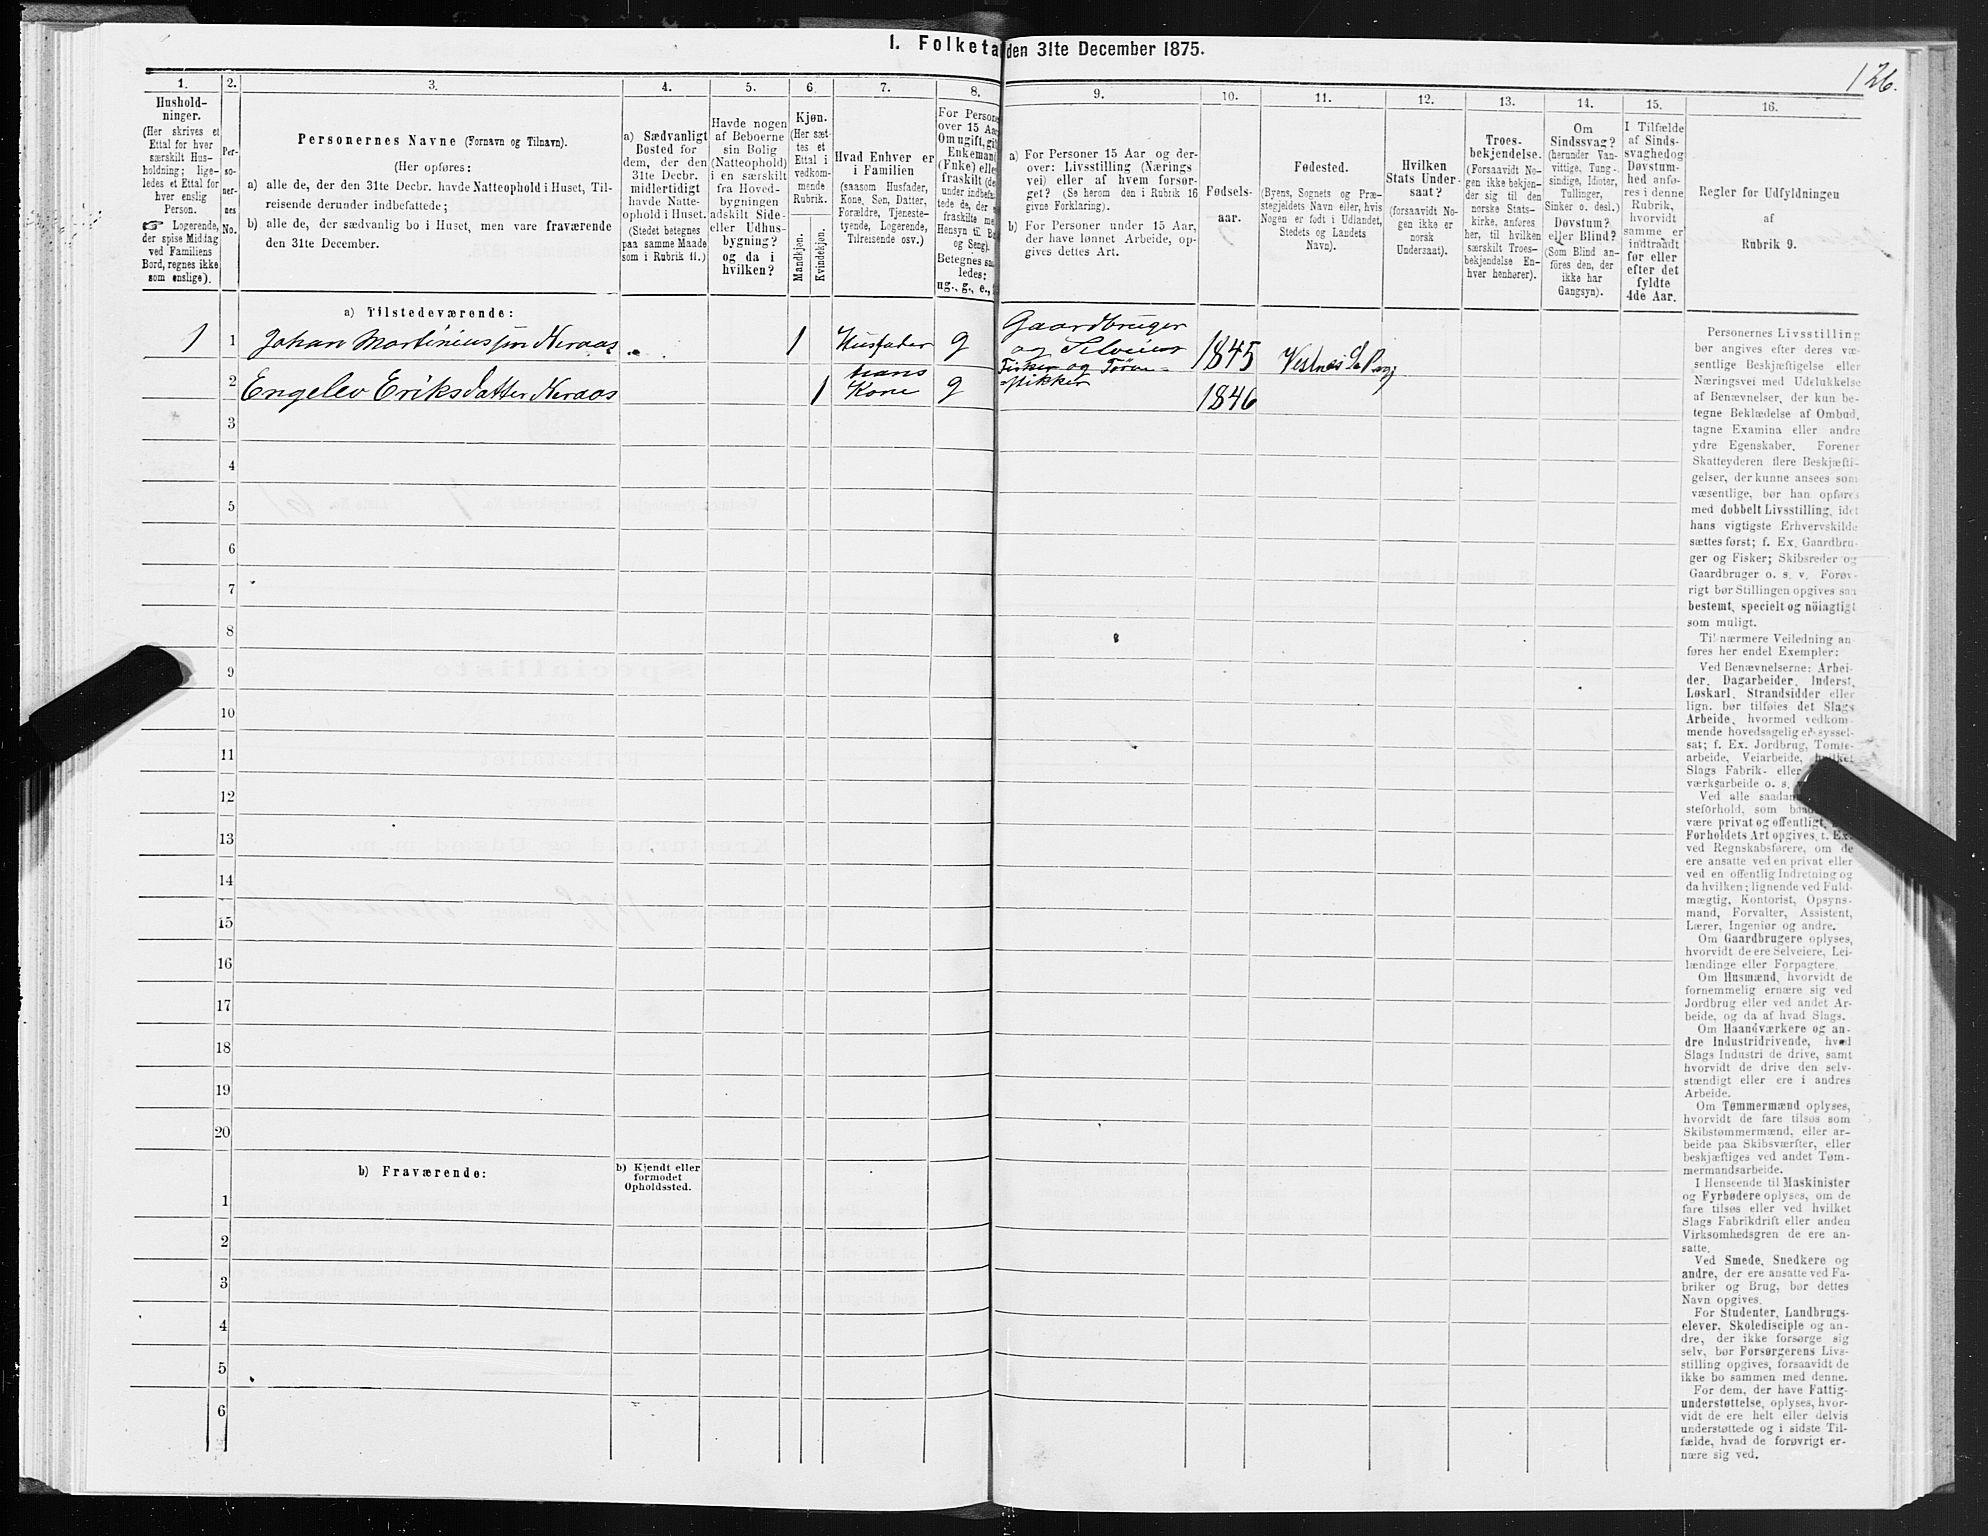 1. Folketa den 31te December 1875.
126.
1. 2. 3. 4. 5. 6. 7. 8. 9. 10. 11. 12. 13. 14. 15. 16.
Hushold-
ninger.
(Her skrives et
Ettal for hver
særskilt Hus-
holdning; lige-
ledes et Ettal for
hver enslig
Person.
☞ Logerende,
der spise Middag
ved Familiens
Bord, regnes ikke
som enslige).
Per-
so-
ner-
nes
No.
Personernes Navne (Fornavn og Tilnavn).
(Her opføres:
a) alle de, der den 31te Decbr. havde Natteophold i Huset, Til-
reisende derunder indbefattede;
b) alle de, der sædvanlig bo i Huset, men vare fraværende
den 31te December.
a) Sædvanligt
Bosted for
dem, der den
31te Decbr.
midlertidigt
havde Natte-
ophold i Huset.
(Stedet betegnes
paa samme Maade
som i Rubrik 11.)
Havde nogen
af Beboerne
sin Bolig
(Natteophold)
i en særskilt
fra Hoved-
bygningen
adskilt Side-
eller Udhus-
bygning?
og da i
hvilken?
Kjøn.
(Her sæt-
tes et
Ettal i
vedkom-
mende
Rubrik.
Mandkjøn.
Kvindekjøn.
Hvad Enhver er
i Familien
(saasom Husfader,
Kone, Søn, Datter,
Forældre, Tjeneste-
tyende, Logerende,
Tilreisende osv.)
For Persone
over 15 Aar
Om ugift, gi
Enkeman
(Enke) elle
fraskilt (de
under indbefat
tede de, der
fraskilte me
Hensyn til Bo
og Seng).
Betegnes saa
ledes:
ug., g., e.,
a) For Personer 15 Aar og der-
over: Livsstilling (Nærings
vei) eller af hvem forsør-
get? (Se herom den i Rubrik 16
givne Forklaring).
b) For Personer under 15 Aar,
der have lønnet Arbeide, op-
gives dettes Art.
Fødsels-
aar.
Fødested.
(Byens, Sognets og Præ-
stegjeldets Navn eller, hvis
Nogen er født i Udlandet,
Stedets og Landets
Navn).
Hvilken
Stats Under-
saat?
(forsaavidt No-
gen ikke er
norsk
Undersaat).
Troes-
bekjendelse.
(Forsaavidt No-
gen ikke bekjen-
der sig til den
norske Stats-
kirke, anføres
her, til hvilken
særskilt Troes-
bekjendelse En-
hver henhører).
Om
Sindssvag?
(herunder Van-
vittige, Tung-
sindige, Idioter,
Tullinger,
Sinker o. desl.)
Døvstum?
eller Blind?
(Som Blind an-
føres den, der
ikke har
Gangsyn).
I Tilfælde
af Sinds-
svaghedog
Døvstum-
hed anfø-
res i denne
Rubrik,
hvorvidt
samme er
indtraadt
før eller
efter det
fyldte
4de Aar.
Regler for Udfyldningen
af
Rubrik 9.
a) Tilstedeværende:
1 1 Johan Martiniussøn Neraas 1 Husfader g Gaardbruger
og Selveier
Fisker og Tøm-
mikker 1845 Vestnes Pr gj
2 Engelev Eriksdatter Neraas 1 hans
Kone g 1846
3
4
5
6
7
8
9
10
11
12
13
14
15
16
17
18
19
20
b) Fraværende:
b) Kjendt eller
formodet
Opholdssted.
1
2
3
4
5
6
Personernes Livsstilling
bør angives efter deres væ-
sentlige Beskjæftigelse eller
Næringsvei med Udelukkelse
af Benævnelser, der kun be-
tegne Beklædelse af Ombud,
tagne Examina eller andre
ydre Egenskaber. Forener
Skatteyderen flere Beskjæfti-
gelser, der kunne ansees som
væsentlige, bør han opføres
med dobbelt Livsstilling, idet
hans vigtigste Erhvervskilde
sættes først; f. Ex. Gaardbru-
ger og Fisker; Skibsreder og
Gaardbruger o. s. v. Forøv-
rigt bør Stillingen opgives saa
bestemt, specielt og nöiagtigt
som muligt.
Til nærmere Veiledning an-
føres her endel Exempler:
Ved Benævnelserne: Arbei-
der, Dagarbeider, Inderst,
Løskarl, Strandsidder eller
lign. bør tilføies det Slags
Arbeide, hvormed vedkom-
mende hovedsagelig er syssel-
sat; f. Ex. Jordbrug, Tomte-
arbeide, Veiarbeide, hvilket
Slags Fabrik- eller
værksarbeide o. s.
Ved alle saadan
steforhold, som baad
være privat og offentligt,
Forholdets Art opgives, t. Ex.
ved Regnskabsførere, om de
ere ansatte ved en privat eller
ved en offentlig Indretning og
da hvilken; lignende ved Fuld-
mægtig, Kontorist, Opsyns-
mand, Forvalter, Assistent,
Lærer, Ingeniør og andre.
Om Gaardbrugere oplyses,
hvorvidt de ere Selveiere, Lei-
lændinge eller Forpagtere.
Om Husmænd, hvorvidt de
fornemmelig ernære sig ved
Jordbrug eller ved andet Ar-
beide, og da af hvad Slags.
Om Haandværkere og an-
dre Industridrivende, hvad
Slags Industri de drive, samt
hvorvidt de drive den selv-
stændigt eller ere i andres
Arbeide.
Om Tømmermænd oplyses,
hvorvidt de fare tilsøs som
Skibstømmermænd, eller ar-
beide paa Skibsværfter, eller
beskjæftiges ved andet Tøm-
mermandsarbeide.
I Henseende til Maskinister
og Fyrbødere oplyses, om de
fare tilsøs eller ved hvilket
Slags Fabrikdrift eller anden
Virksomhedsgren de ere an-
satte.
Ved Smede, Snedkere og
andre, der ere ansatte ved Fa-
briker og Brug, bør dettes
Navn opgives.
For Studenter, Landbrugs-
elever, Skoledisciple og an-
dre, der ikke forsørge sig
selv, bør Forsørgerens Livs-
stilling opgives, forsaavidt de
ikke bo sammen med denne.
For dem, der have Fattig-
understøttelse, oplyses, hvor-
vidt de ere helt eller delvis
understøttede og i sidste Til-
fælde, hvad de forøvrigt er-
nære sig ved.